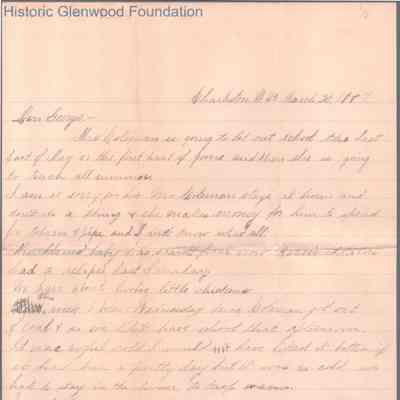 Historic Glenwood Foundation
Charleston W. Va March 20, 1887
Dear George—
Mrs Coleman is going to let out school the last
part of May or the first part of June and then she is going
to teach all summer
I am so sorry for her Mr Coleman stays at home and
don't do a thing & she makes money for him to spend
for tobacco & pipe and I don't know what all.
baby
had a relapse last Sunday
We have about little chickens
Wednesday Coleman got out
of coal & so we didn't have school that afternoon.
It was cold I would not have liked it better if
it had been a pretty day but it was so cold we
had to stay in the house to keep warm